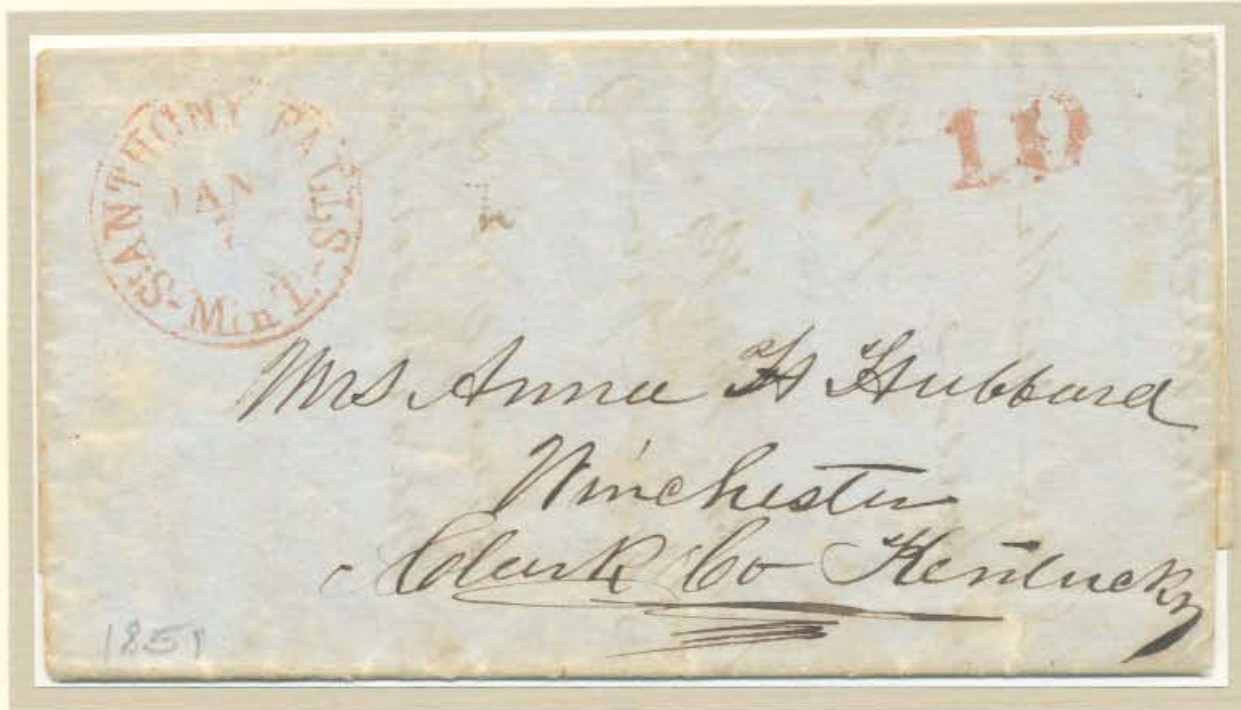 ST. ANTHONY FALLS
JAN
Min T.
10
Mrs Anna H Hubbard
Winchester
Clark Co Kentucky
1851